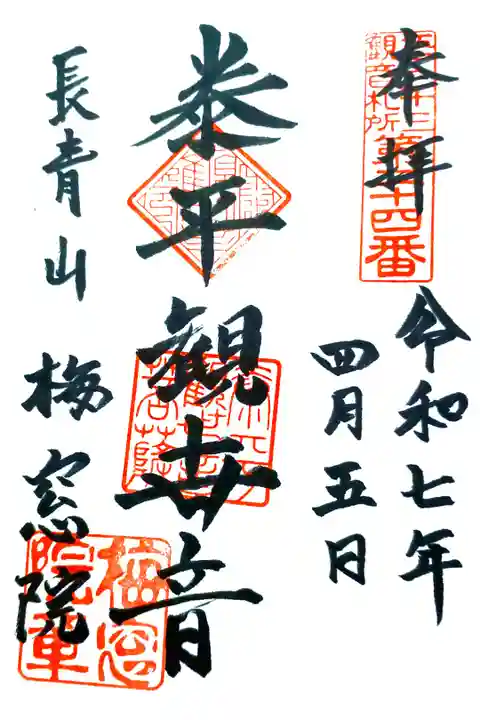 奉拝
観音札所
第二十四番
令和七年
四月五日
泰平観世音
長青山
梅窓院
梅窓
院章